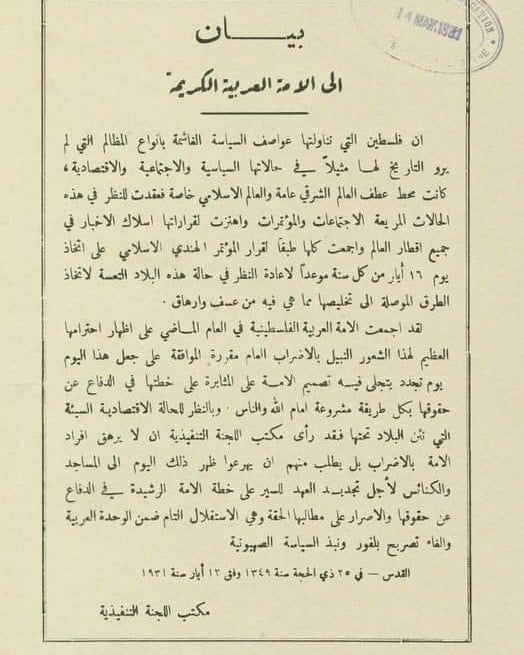 14 MAY. 1931
بيـــان
الى الامة العربية الكريمة
ان فلسطين التي تناولتها عواصف السياسة الغاشمة بانواع المظالم التي لم
يرو التاريخ لها مثيلاً في حالاتها السياسية والاجتماعية والاقتصادية،
كانت محط عطف العالم الشرقي عامة والعالم الاسلامي خاصة فعقدت للنظر في هذه
الحالات المريعة الاجتماعات والمؤتمرات واهتزت لقراراتها اسلاك الاخبار في
جميع اقطار العالم واجمعت كلها طبقاً لقرار المؤتمر الهندي الاسلامي على اتخاذ
يوم ١٦ أيار من كل سنة موعداً لاعادة النظر في حالة هذه البلاد التعسة لاتخاذ
الطرق الموصلة الى تخليصها مما هي فيه من عسف وارهاق .
لقد اجمعت الامة العربية الفلسطينية في العام الماضي على اظهار احترامها
العظيم لهذا الشعور النبيل بالاضراب العام مقررة الموافقة على جعل هذا اليوم
يوم تجدد يتجلى فيه تصميم الامة على المثابرة على خطتها في الدفاع عن
حقوقها بكل طريقة مشروعة امام الله والناس . وبالنظر للحالة الاقتصادية السيئة
التي تئن البلاد تحتها فقد رأى مكتب اللجنة التنفيذية ان لا يرهق افراد
الامة بالاضراب بل يطلب منهم ان يهرعوا ظهر ذلك اليوم الى المساجد
والكنائس لأجل تجديد العهد للسير على خطة الامة الرشيدة في الدفاع
عن حقوقها والاصرار على مطالبها الحقة وهي الاستقلال التام ضمن الوحدة العربية
والغاء تصريح بلفور ونبذ السياسة الصهيونية
القدس – في ٢٥ ذي الحجة سنة ١٣٤٩ وفق ١٢ أيار سنة ١٩٣١
مكتب اللجنة التنفيذية